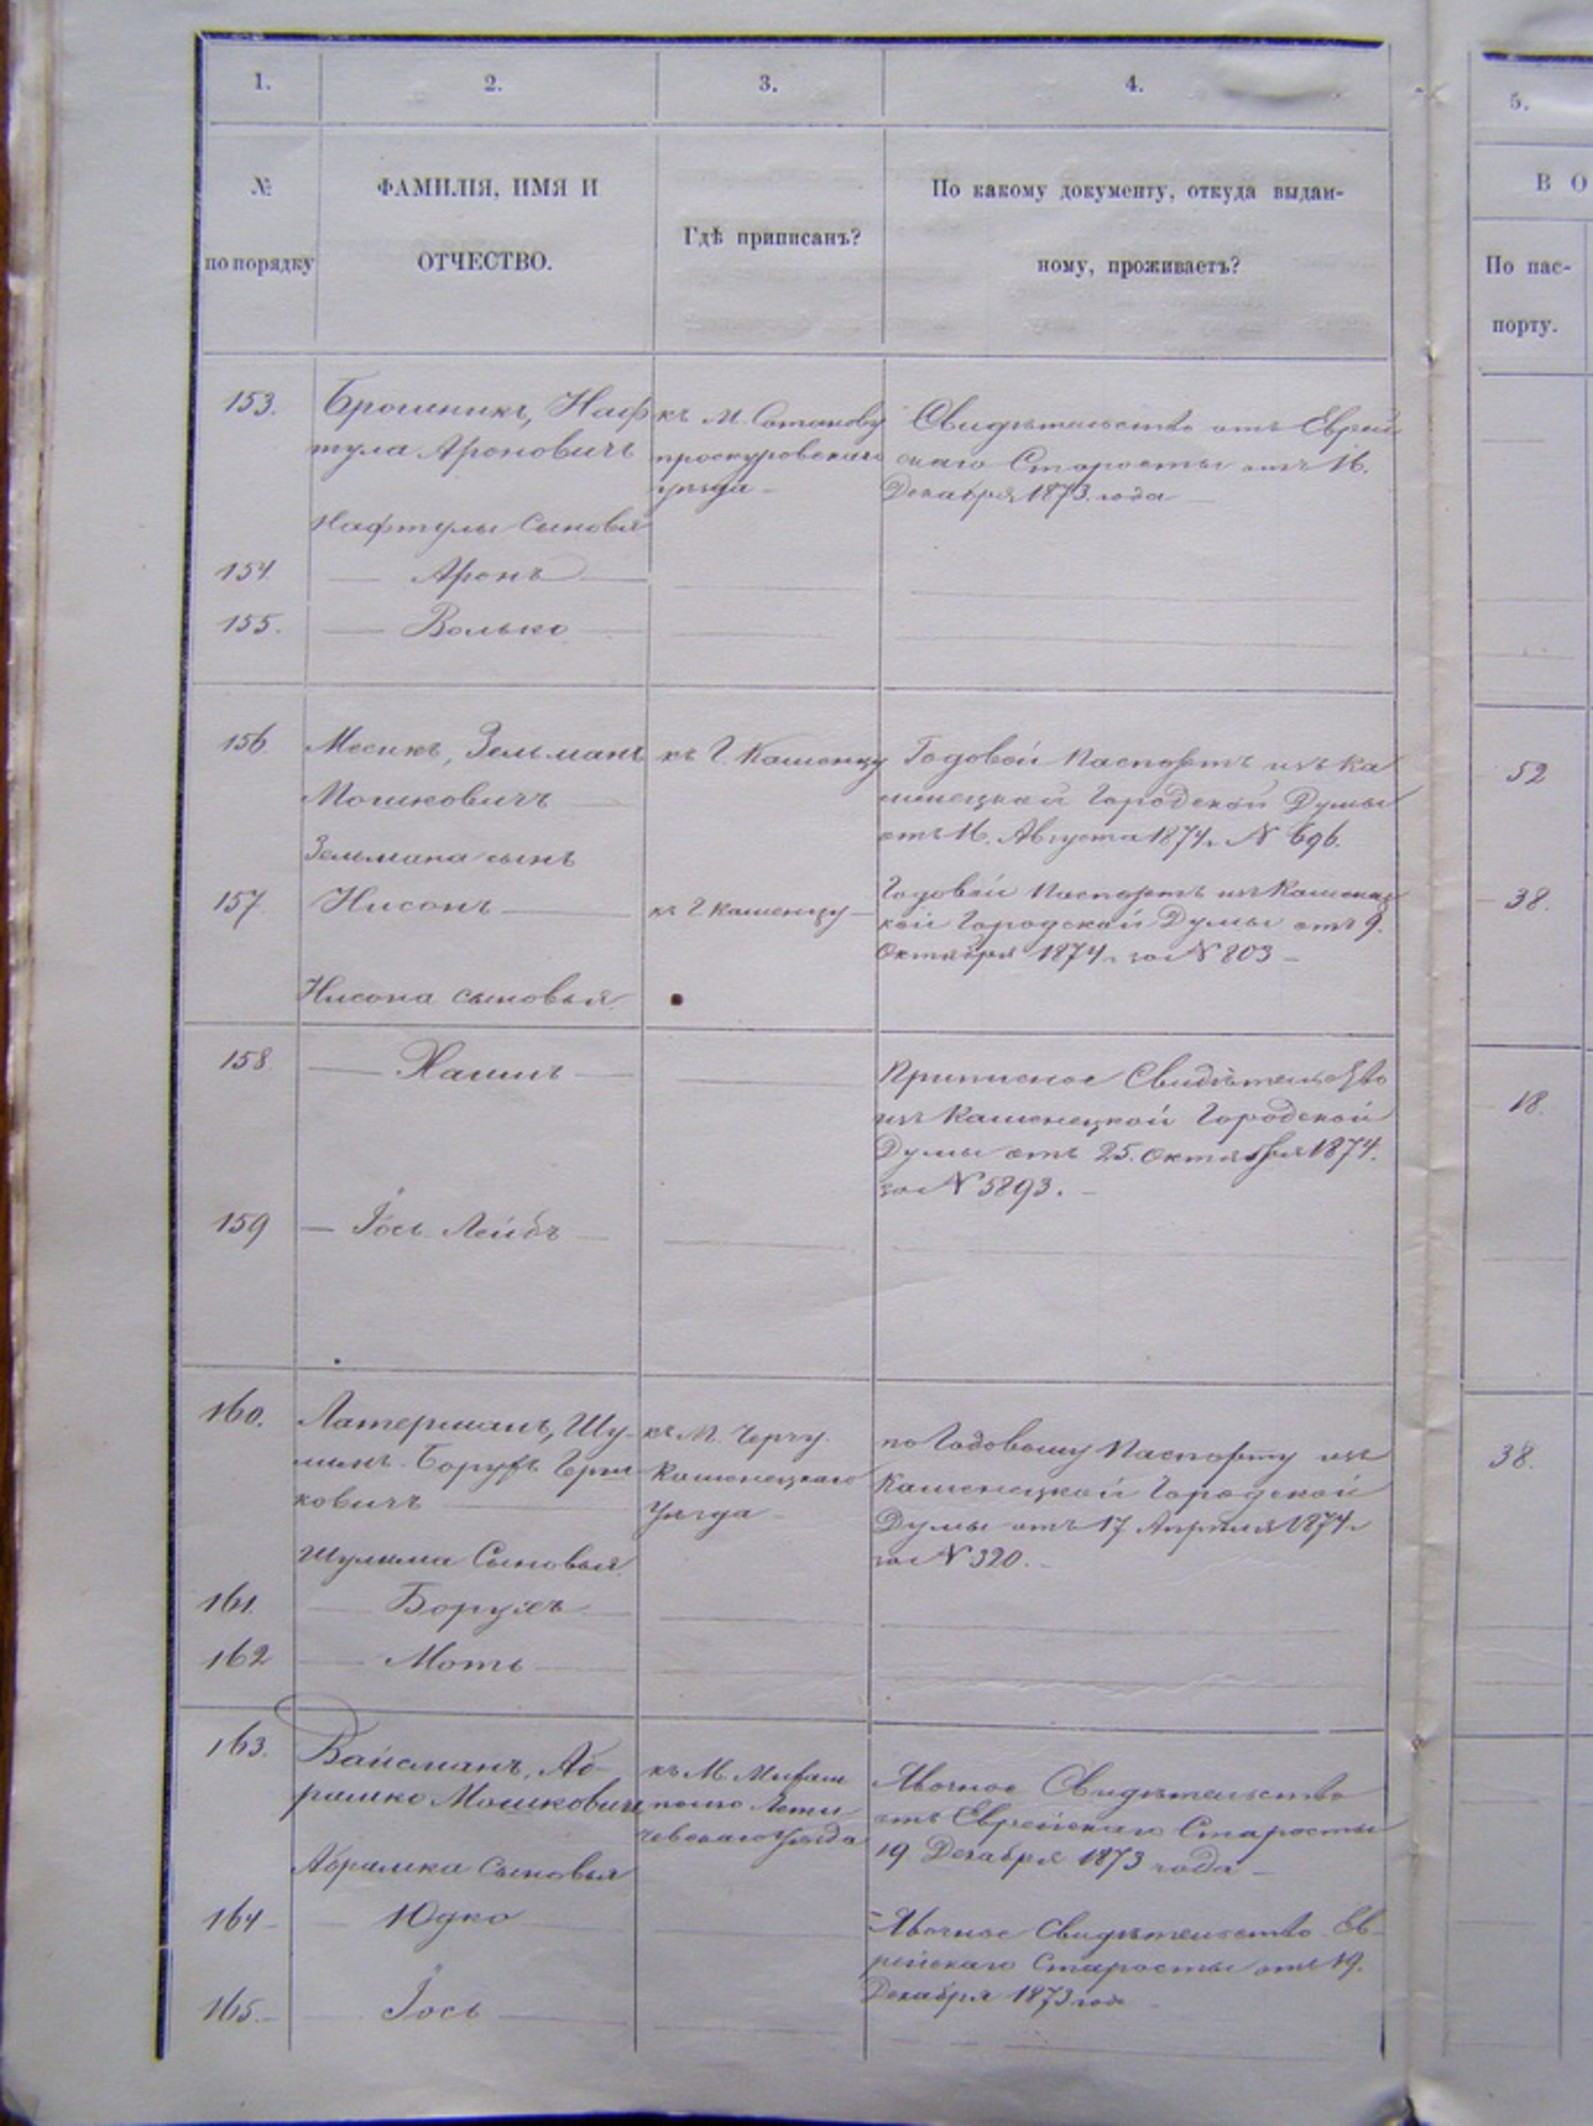 1.
2.
3.
4.
5.
№
по порядку
ФАМИЛІЯ, ИМЯ И
ОТЧЕСТВО.
Гдѣ приписанъ?
По какому документу, откуда выдан-
ному, проживаетъ?
В О
По пас-
порту.
153.
Наф
тула Ароновичъ
къ М. Сатанову
проскуровскаго
уѣзда
Свидѣтельство отъ Еврей
скаго Старосты отъ 16.
Декабря 1873 года
Нафтулы Сыновья
154.
Аронъ
155.
Волько
156
Месикъ, Зельманъ
Мошковичъ
къ Г. Каменцу
Годовой Паспортъ изъ Ка
менецкой Городской Думы
отъ 16. Августа 1874 г. № 696.
52
Зельмана сынъ
157
Нисонъ
къ Г. Каменцу
Годовой Паспортъ изъ Каменец
кой Городской Думы отъ 9.
Октября 1874 г. за № 803
38.
Нисона сыновья
158
Хаимъ
Приписное Свидѣтельство
изъ Каменецкой Городской
Думы отъ 25. Октября 1874.
за № 5893.
18.
159
Іось Лейбъ
160.
Латерманъ, Шу-
лимъ Борухъ Герш
ковичъ
къ М. Черчу
Каменецкаго
Уѣзда
по Годовому Паспорту изъ
Каменецкой Городской
Думы отъ 17 Апрѣля 1874 г.
за № 320.
38.
Шулима Сыновья
161.
Борухъ
162
Моть
163.
Вайсманъ, Аб-
рамко Мошковичъ
къ М.
Лети
чевскаго Уѣзда
Явочное Свидѣтельство
отъ Еврейскаго Старосты
19 Декабря 1873 года
Абрамка Сыновья
164
Юдко
Явочное Свидѣтельство Ев
рейскаго Старосты отъ 19.
Декабря 1873 года
165.
Іось